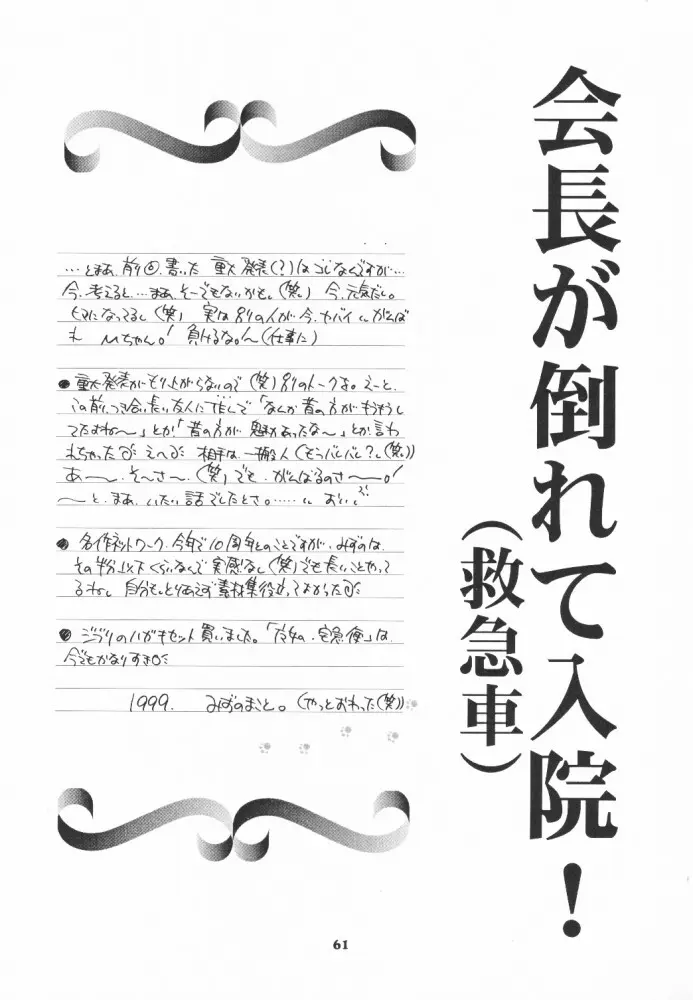 会長が倒れて入院！
（救急車）
…とまあ、前回書いた 重大発表(？)はコレなんですが…
今、考えると…まあ、そーでもないかも。(笑) 今、元気だし。
ヒマになってるし(笑) 実は別の人が今、ヤバイ がんば
れ Mちゃん。! 負けるな。!〜(仕事に)
●重大発表がもり上がらないので(笑)別のトークを。えーと、
この前、つき合い長い友人に 「なんか昔の方がもうもうし
てたよねー〜」とか「昔の方が魅力あったな〜」とか言わ
れちゃった えへ 相手は一般人(もうバレバレ?(笑))
あ〜、そーさー、(笑)でも、がんばるのさー〜。!
〜と、まあ、いたい話でしたとさ。…… おいし
●名作ネットワーク、今年で10周年とのことですが、みずのは、
その半分以下くらいなんで 実感なし(笑)でも長いことやって
るねし 自分も、とりあえず素材集役立ってよかった
●ジブリのハガキセット買いました。「魔女の宅急便」は、
今でもかなりすき
1999. みずのまこと。(やっとおわった(笑))
61